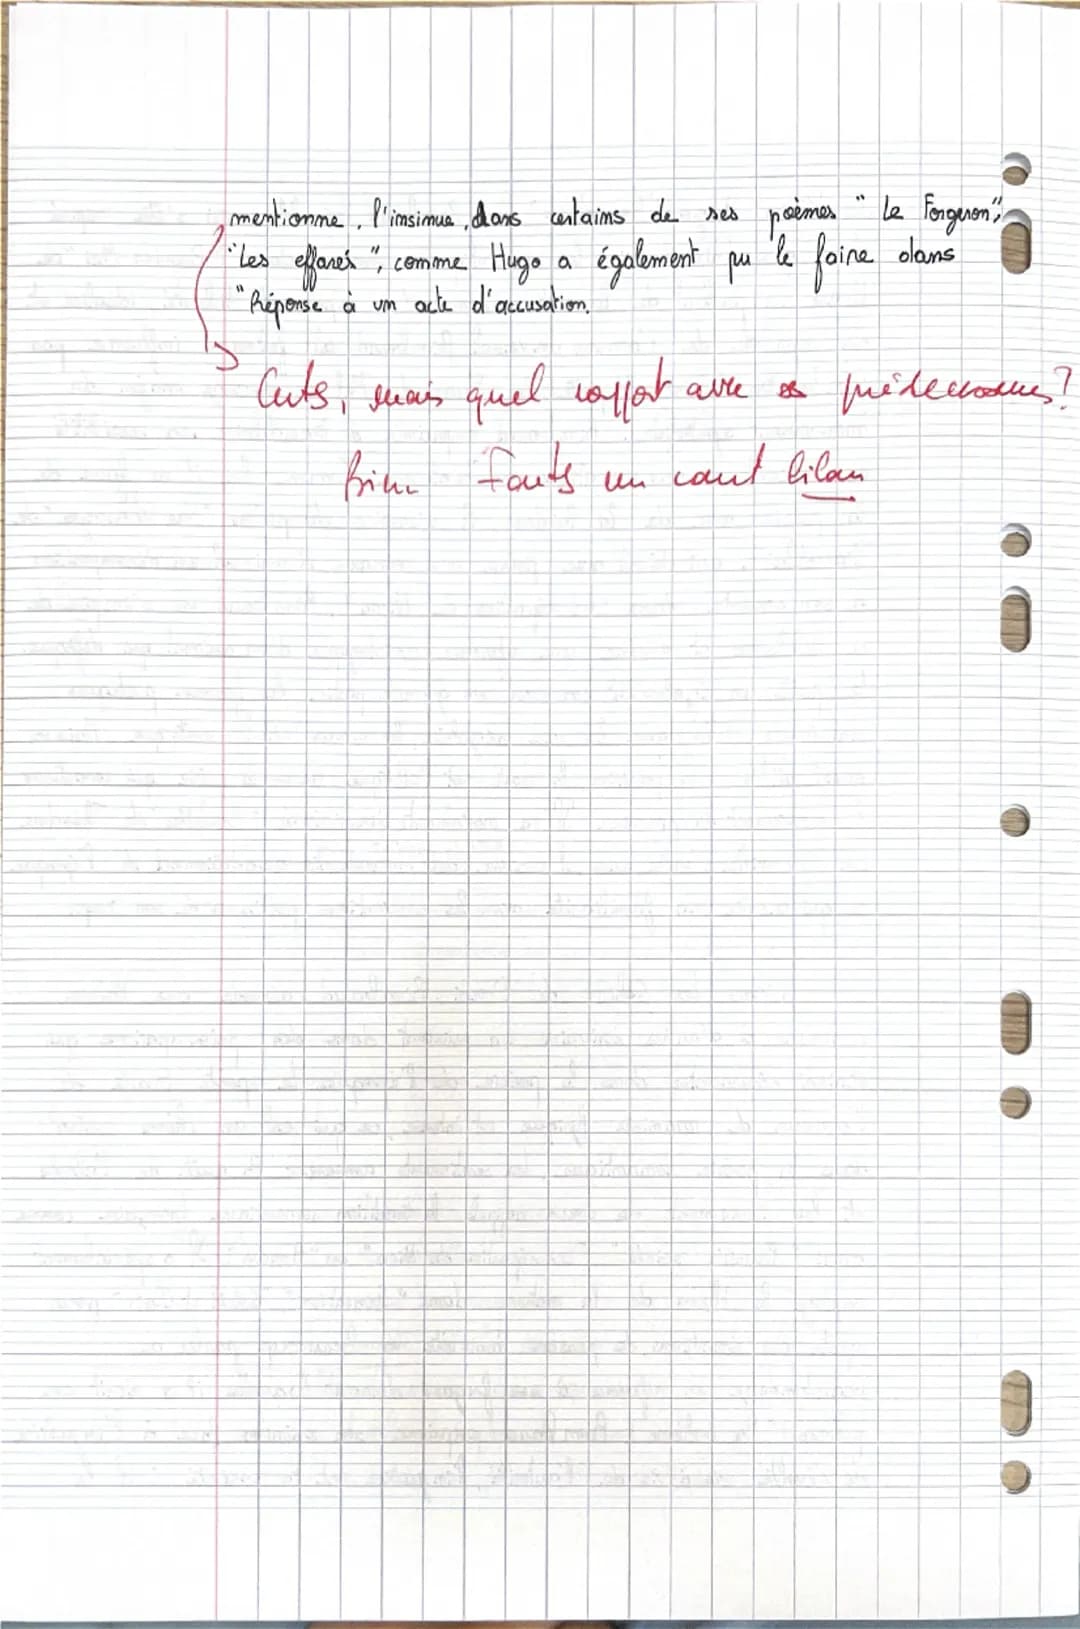 mentionne, l'insinue, dans certains de ses poèmes "Le Forgeron",
"Les effarés", comme Hugo a également pu le faire dans
"Réponse à un acte d'accusation.
Certs, mais quel rapport avec prédécesseurs?
Bien Faits un court bilan